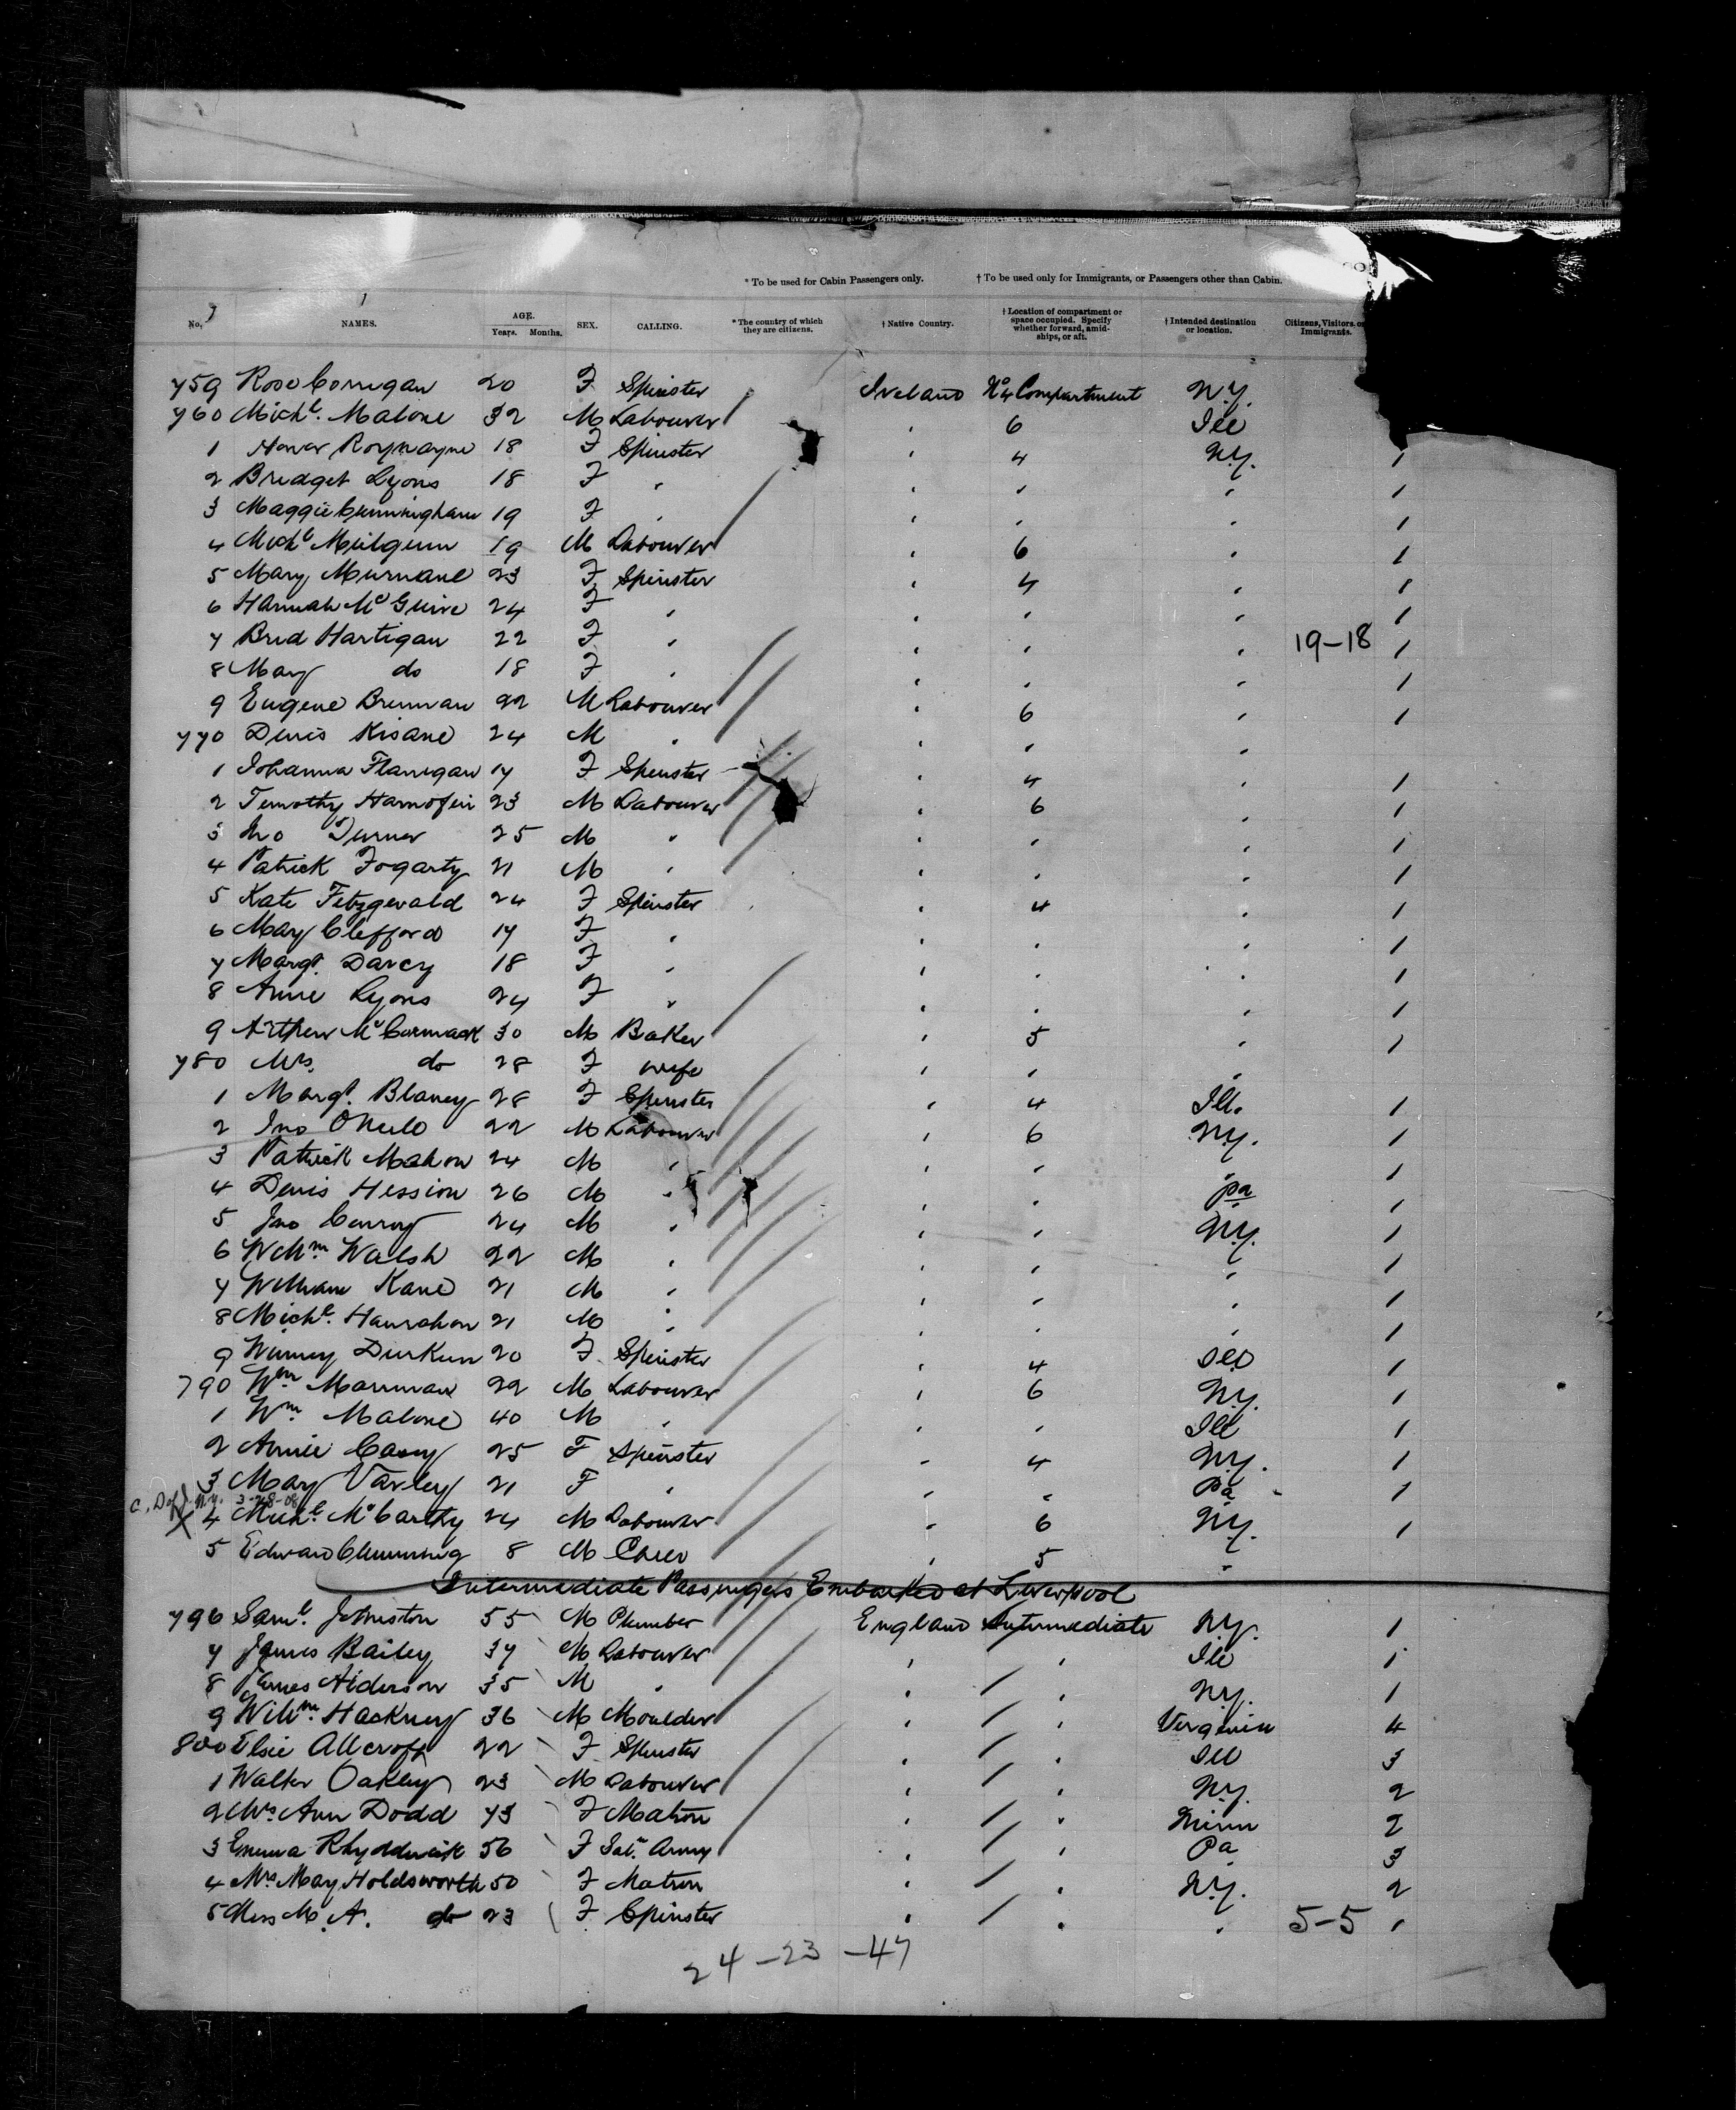 * To be used for Cabin Passengers only. † To be used only for Immigrants, or Passengers other than Cabin.
No. NAMES. AGE. Years. Months. SEX. CALLING. * The country of which they are citizens. † Native Country. † Location of compartment or space occupied. Specify whether forward, amidships, or aft. † Intended destination or location. Citizens, Visitors, or Immigrants.
759 Rose Corrigan 20 F Spinster Ireland No 4 Compartment N.Y.
760 Michl. Malone 32 M Labourer " 6 Ill
1 Roynayne 18 F Spinster " 4 N.Y. 1
2 Bridget Lyons 18 F " " " " 1
3 Maggie Cunningham 19 F " " " " 1
4 Michl Mulqueen 19 M Labourer " 6 " 1
5 Mary Murnane 23 F Spinster " 4 " 1
6 Hannah McGuire 24 F " " " " 1
7 Brid Hartigan 22 F " " " " 19-18 1
8 Mary do 18 F " " " " 1
9 Eugene Brennan 22 M Labourer " 6 " 1
770 Denis Kisane 24 M " " " "
1 Johanna Flanigan 17 F Spinster " 4 " 1
2 Timothy 23 M Labourer " 6 " 1
3 Jno Turner 25 M " " " " 1
4 Patrick Fogarty 21 M " " " " 1
5 Kate Fitzgerald 24 F Spinster " 4 " 1
6 Mary Clifford 17 F " " " " 1
7 Margt. Darcy 18 F " " " " 1
8 Annie Lyons 24 F " " " " 1
9 Arthur McCormack 30 M Baker " 5 " 1
780 Mrs. do 28 F wife " " "
1 Margt. Blaney 28 F Spinster " 4 Ill. 1
2 Jno O'Neil 22 M Labourer " 6 N.Y. 1
3 Patrick Mahon 24 M " " " 1
4 Denis Hession 26 M " " " pa 1
5 Jno Conroy 24 M " " " N.Y. 1
6 Willm Walsh 22 M " " " " 1
7 William Kane 21 M " " " " 1
8 Michl. Hanrahan 21 M " " " " 1
9 Winney Durkin 20 F Spinster " 4 Ill 1
790 Wm Marrinan 22 M Labourer " 6 N.Y. 1
1 Wm Malone 40 M " " " Ill 1
2 Annie Casey 25 F Spinster " 4 N.Y. 1
3 Mary Varley 21 F " " " Pa 1
N.Y. 3-28-08
X 4 Michl. McCarthy 24 M Labourer " 6 N.Y. 1
5 Edward Cumming 8 M Child " 5 "
Intermediate Passengers Embarked at Liverpool
796 Saml. Johnston 55 M Plumber England Intermediate N.Y. 1
7 James Bailey 37 M Labourer " " Ill 1
8 James Alderson 35 M " " " N.Y. 1
9 Willm. Hackney 36 M Moulder " " Virginia 4
800 Elsie Allcroft 22 F Spinster " " Ill 3
1 Walter Oakley 23 M Labourer " " N.Y. 2
2 Mrs Ann Dodd 73 F Matron " " Minn 2
3 Emma 56 F Salt. Army " " Pa 3
4 Mrs May Holdsworth 50 F Matron " " N.Y. 2
5 Miss M. A. do 23 F Spinster " " " 5-5 1
24-23-47